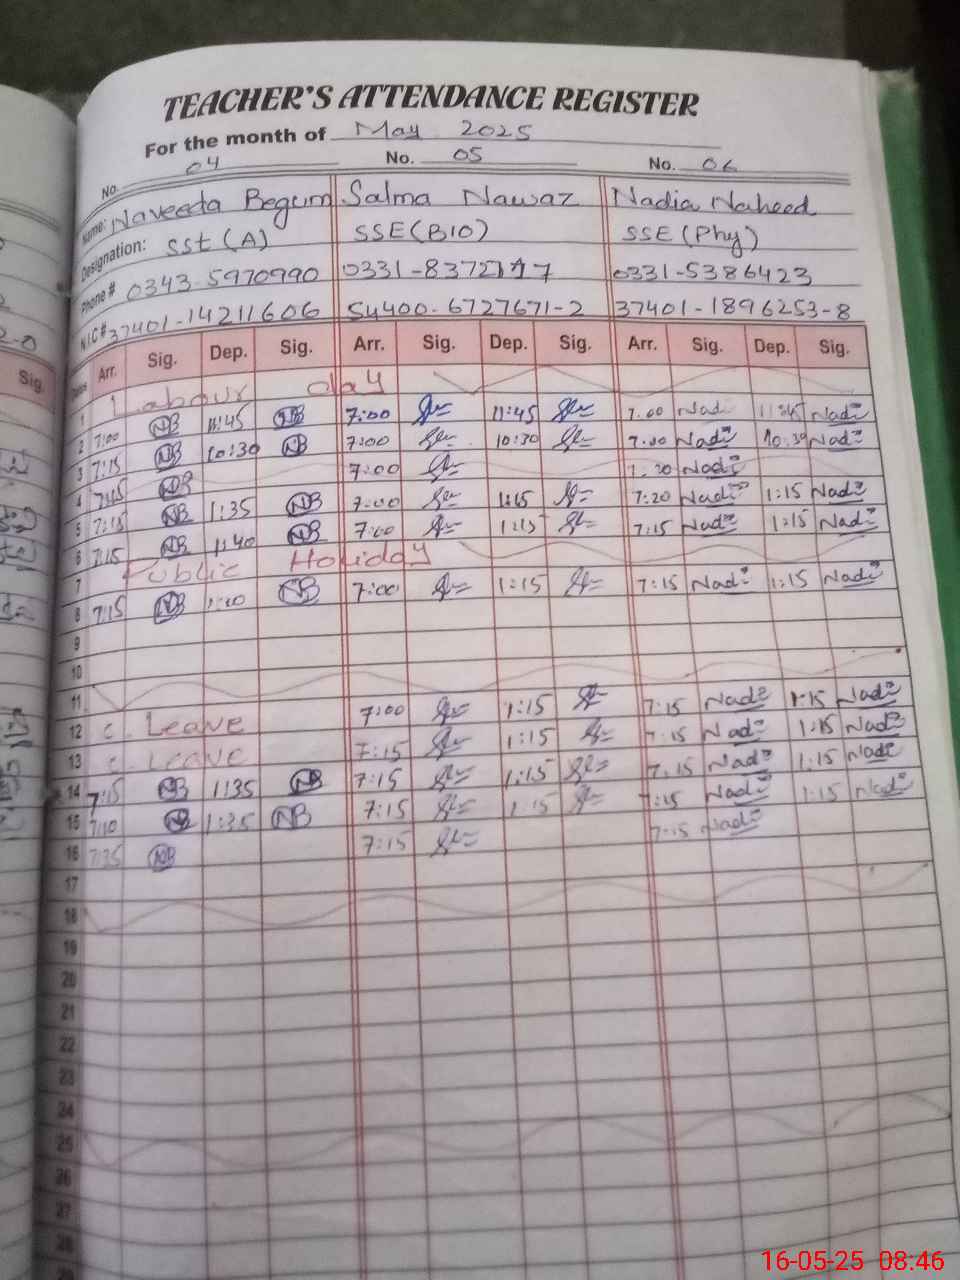 TEACHER'S ATTENDANCE REGISTER
For the month of May 2025
No. 04 No. 05 No. 06
Name: Naveeda Begum Salma Nawaz Nadia Naheed
Designation: SSt (A) SSE (BIO) SSE (Phy)
Phone # 0343-5970990 0331-8372 7 0331-5386423
N.I.C# 37401-14211606 54400-6727671-2 37401-1896253-8
Arr. Sig. Dep. Sig. Arr. Sig. Dep. Sig. Arr. Sig. Dep. Sig.
1 Labour day
2 7:00 NB 11:45 NB 7:00 11:45 7:00 Nadi 11:45 Nadi
3 7:15 NB 10:30 NB 7:00 10:30 7:00 Nadi 10:30 Nadi
4 NB 7:00 7:20 Nadi
5 7:15 NB 1:35 NB 7:00 1:15 7:20 Nadi 1:15 Nadi
6 7:15 NB 1:40 NB 7:00 1:15 7:15 Nadi 1:15 Nadi
7 Public Holiday
8 7:15 NB NB 7:00 1:15 7:15 Nadi 1:15 Nadi
9
10
11
12 C. Leave 7:00 1:15 7:15 Nadi 1:15 Nadi
13 C. Leave 7:15 1:15 7:15 Nadi 1:15 Nadi
14 7:15 NB 1:35 NB 7:15 1:15 7:15 Nadi 1:15 Nadi
15 7:10 NB 1:35 NB 7:15 1:15 7:15 Nadi 1:15 Nadi
16 7:35 NB 7:15 7:15 Nadi
17
18
19
20
21
22
23
24
25
26
27
28
16-05-25 08:46